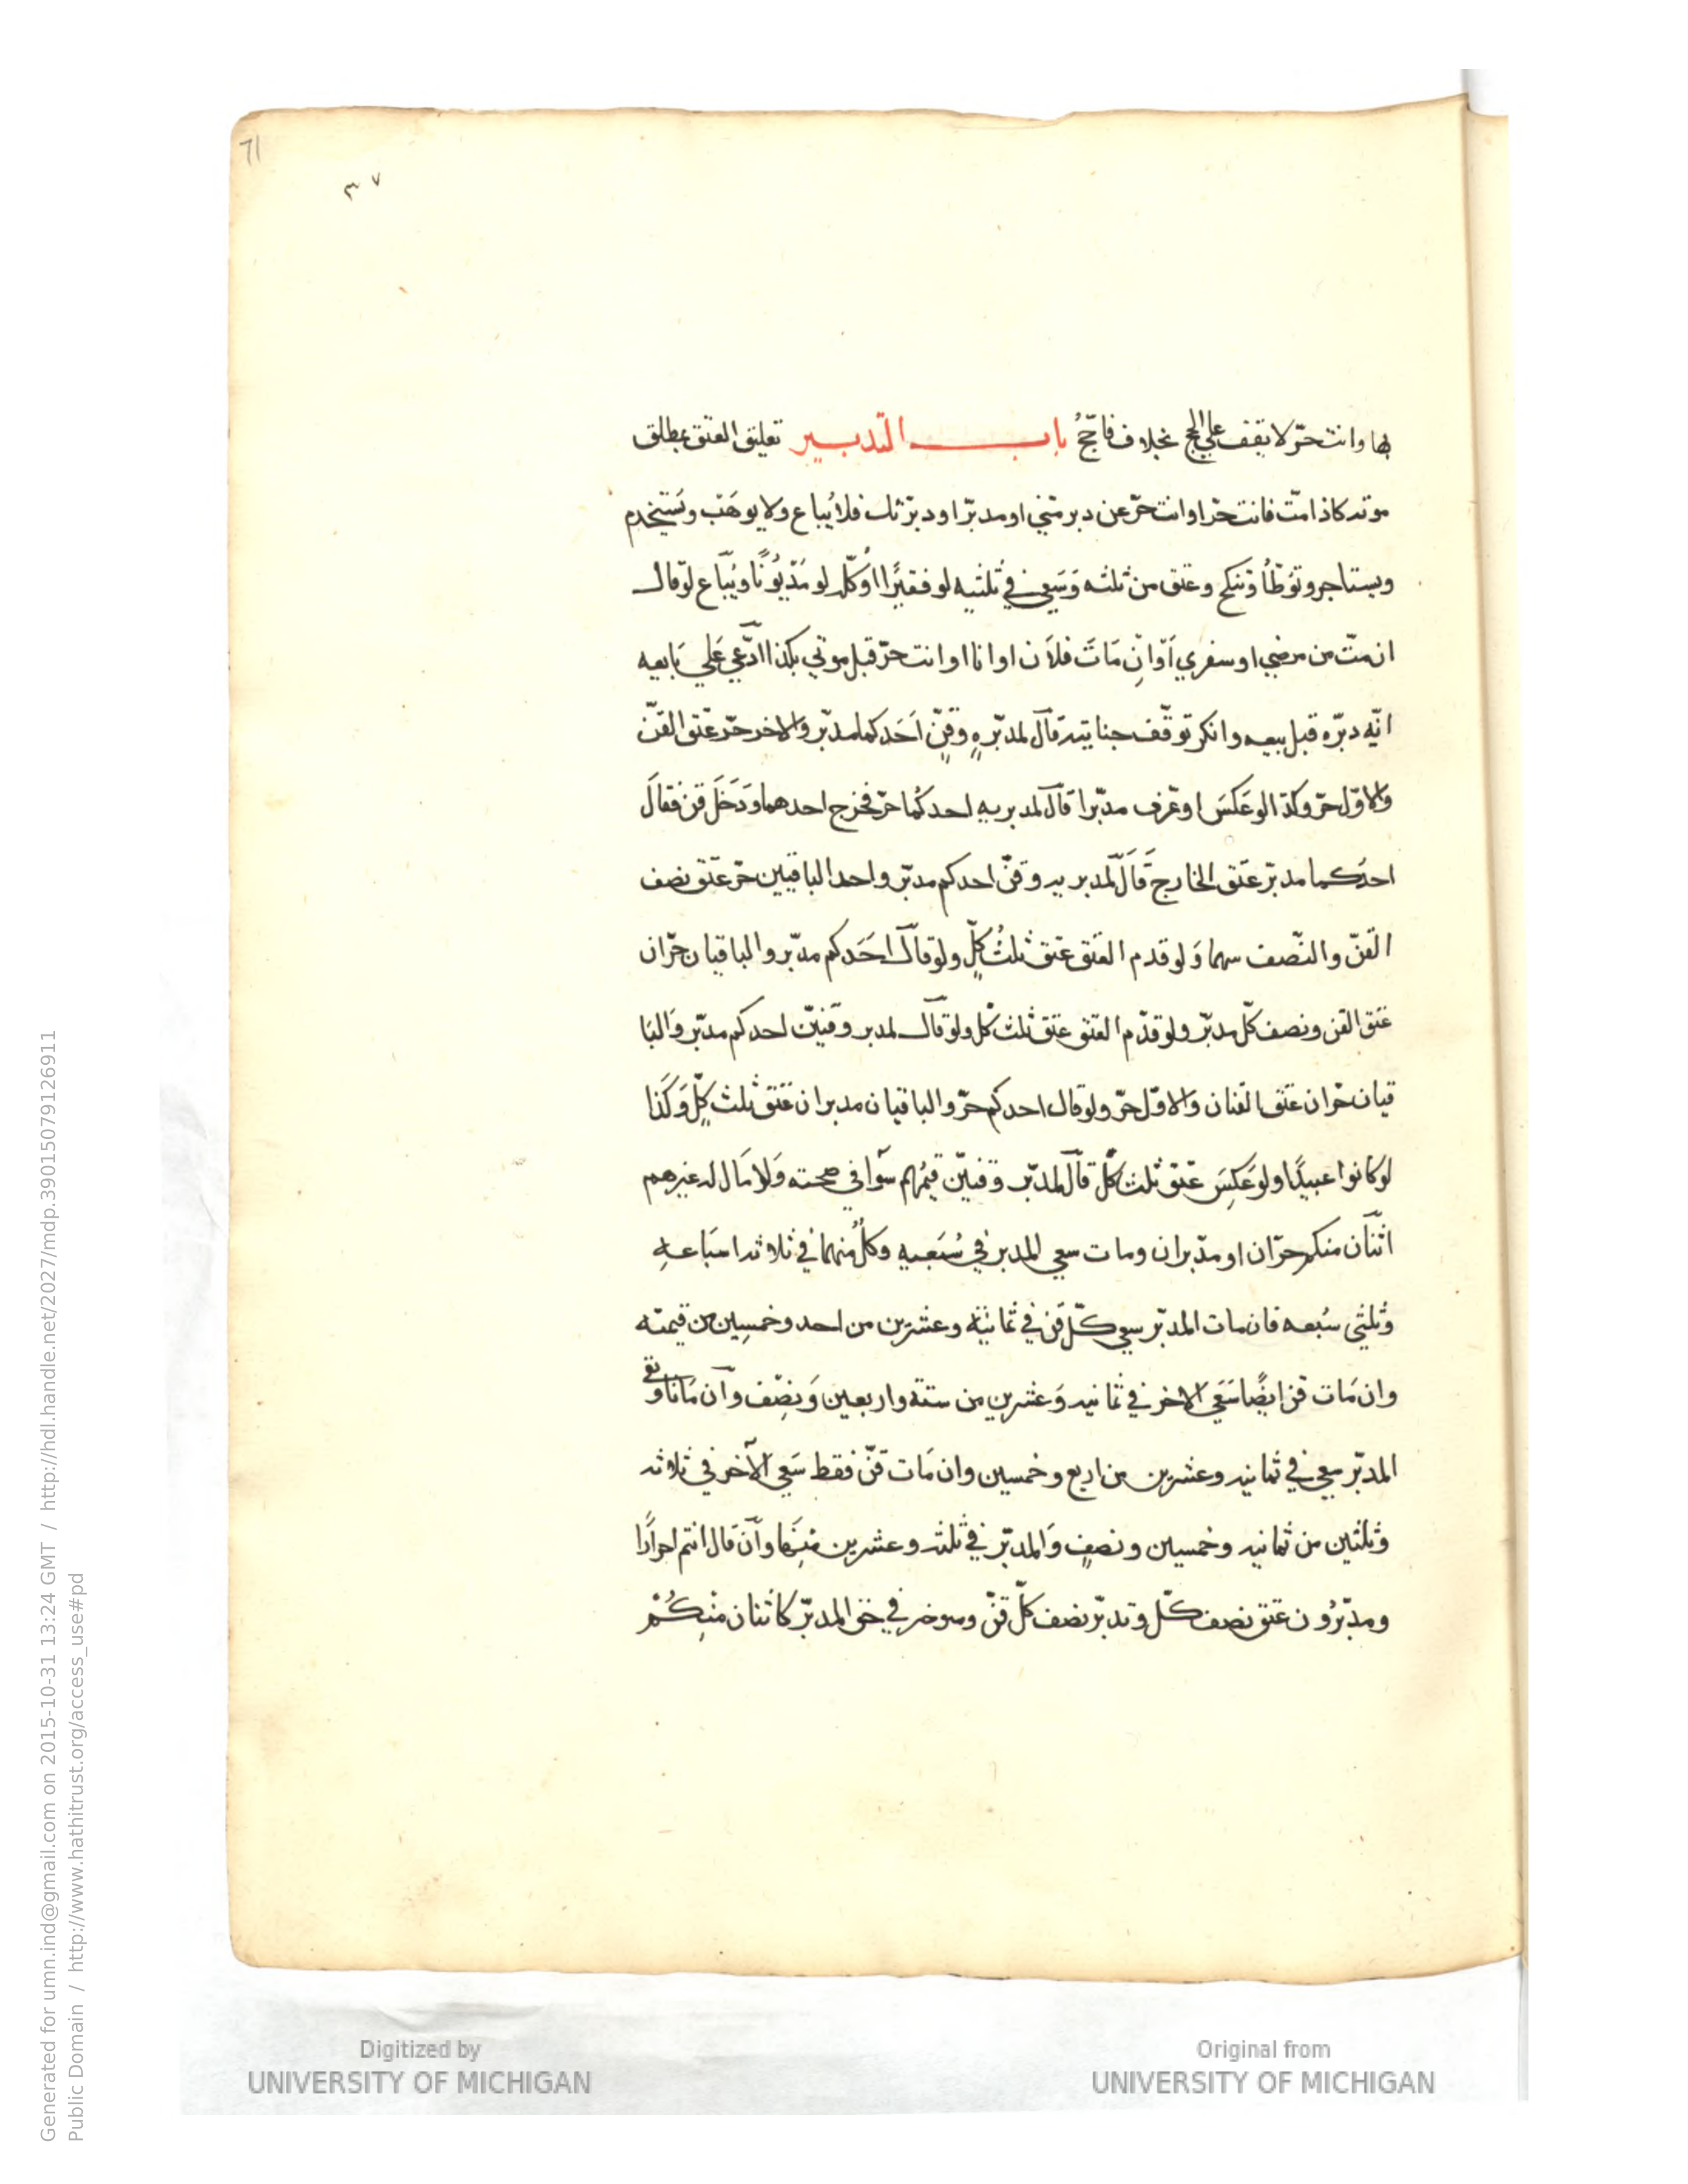 71
٣٧
بها وانت حرّ لا يقف علي الحج بخلاف فاحجّ باب التدبير تعليق العتق بمطلق
موته كاذا متّ فانت حرّ او انت حرّ عن دبر منّي او مدبّر او دبرتك فلا يُباع ولا يوهَب ويَستخدم
ويستاجر وتوطأ وتنكح وعتق من ثلثه وَسَعي في ثلثيه لو فقيرًا اوكلّه لو مَدْيُونًا ويُبَاع لو قال
ان متّ من مرضي او سفري اَوْ ان مَات فلان او انا او انت حرّ قبل موتي بكذا ادّعي عَلي بَايعه
انّه دبّره قبل بيعه وانكر توقّف جنايته قال لمدبّرهِ وقنٍّ اَحَدكما مدبّر والاخر حرّ عتق القنّ
والاوّل حرّ وكذا لو عَكَسَ او عرف مدبّرا قال لمدبريه احدكُما حرّ فخرج احدهما ودَخَلَ قن فقال
احدكما مدبّر عتق الخارج قَالَ لمدبريه وقنّ احدكم مدبّر واحد الباقيين حرّ عتق نصف
القنّ والنّصف بينهما وَلو قدم العتق عتق ثلثُ كلٍّ ولو قال احَدكم مدبّر والباقيان حرّان
عتق القن ونصف كلّ مدبّر ولو قدّم العتق عتق ثلث كل ولو قال لمدبر وقنيّن احدكم مدبّر وَالبَا
قيان حرّان عتق القنان والاوّل حرّ ولو قال احدكم حرّ والباقيان مدبران عَتق ثلث كلٍّ وَكَذا
لو كانوا عبيدًا ولو عَكسَ عتق ثلث كلّ قال لمدبّر وقنيّن قيمُهم سَوَا في صحته وَلا مَال له غيرهم
اثنان منكم حرّان او مدّبران ومات سعي المدبر في سُبَعيه وكلّ منهما في ثلاثه اسبَاعه
وثُلثي سُبعه فان مات المدبّر سعي كلّ قن في ثمانيَة وعشرين من احد وخمسِين من قيمته
وان مَات قن ايضًا سَعَي الاخر في ثمانيه وَعشرين من ستة واربعين وَنصِف وان مَاتا وبقي
المدبّر سعي في ثمانيه وعشرين من اربع وخمسين وان مَات قنّ فقط سَعي الآخر في ثلاثه
وثلثين من ثمانيه وخمسين ونصفٍ وَالمدبّر في ثلثه وعشرين منَها وانْ قال انتم احرارًا
ومدبّرُون عتق نصف كلّ وتدبّر نصف كلّ قنّ في حق المدبّر كاثنان منِكُمْ
Digitized by
UNIVERSITY OF MICHIGAN
Original from
UNIVERSITY OF MICHIGAN
Generated for umn.ind@gmail.com on 2015-10-31 13:24 GMT / http://hdl.handle.net/2027/mdp.39015079126911
Public Domain / http://www.hathitrust.org/access_use#pd